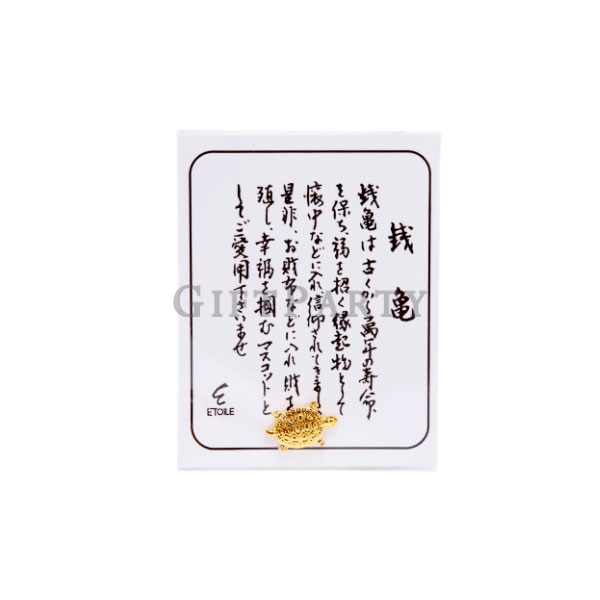 銭亀
銭亀は古くから萬年の寿命
を保ち福を招く縁起物として
懐中などに入れ信仰されてきまし
是非、お財布などに入れ財を
殖し、幸福を掴むマスコットと
してご愛用下さいませ
ETOILE
GIFTPARTY